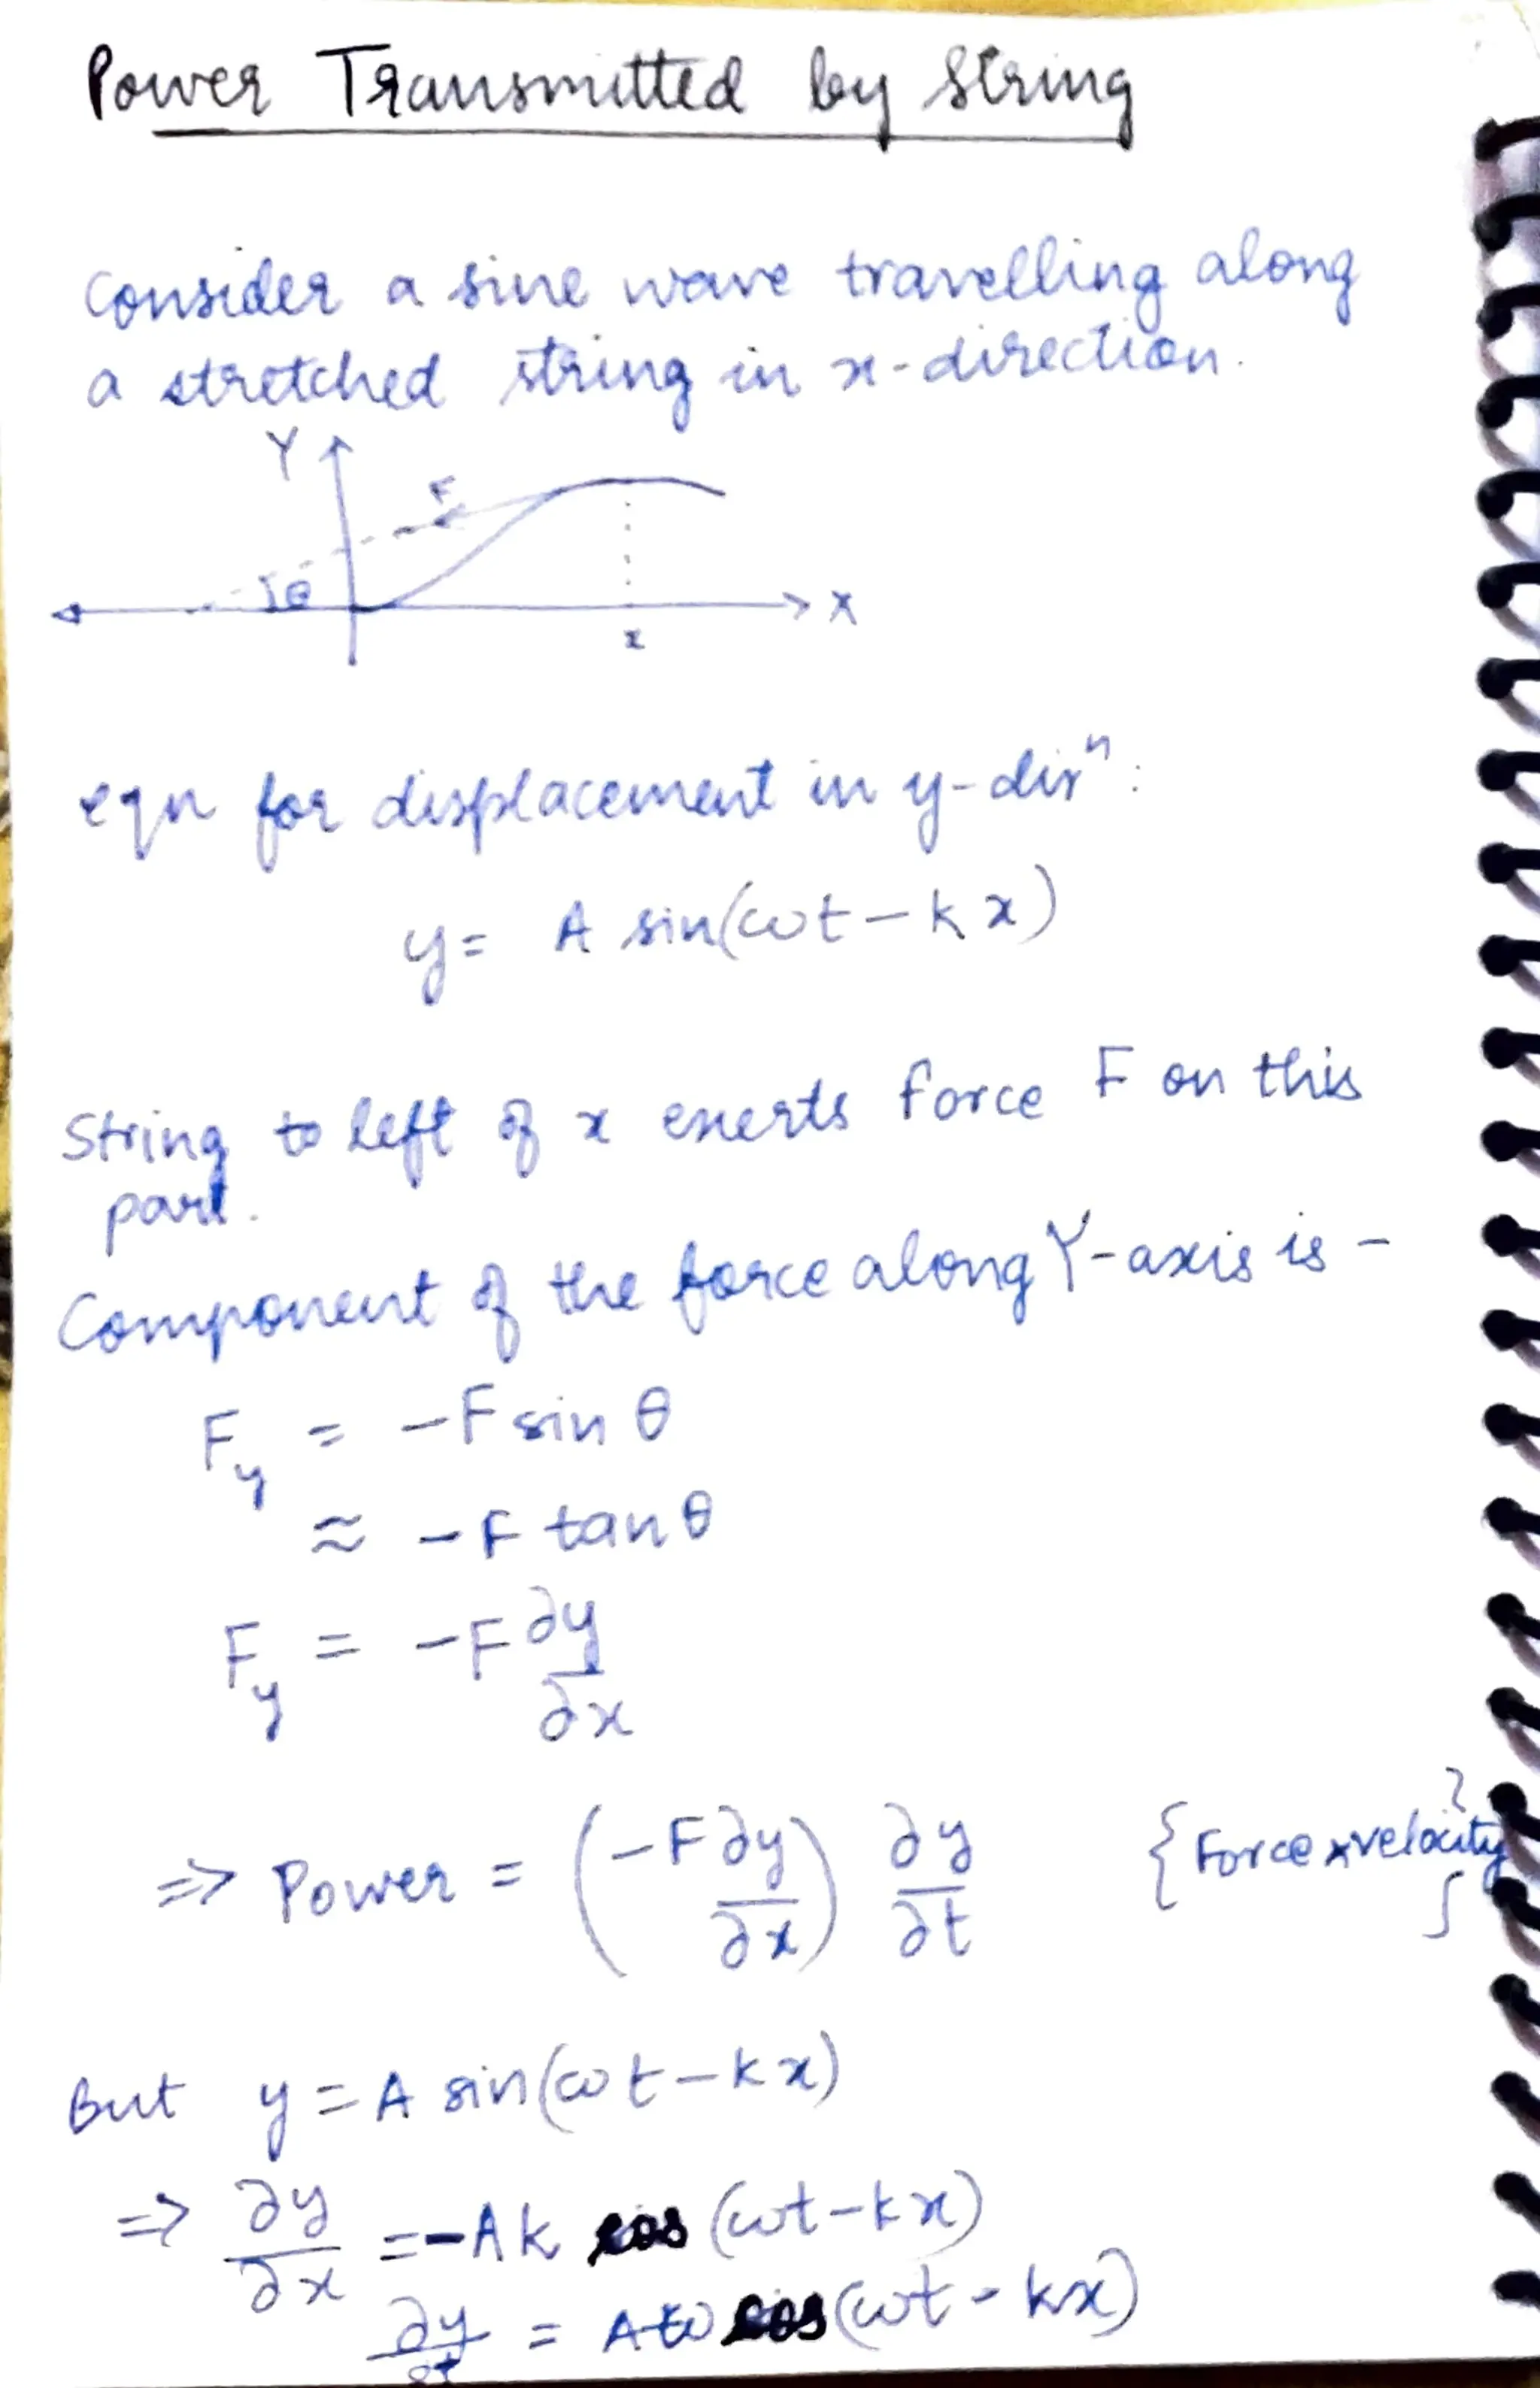 Power Transmitted by String
Consider a sine wave travelling along
a stretched string in x-direction.
Y
F
θ
X
x
eqn for displacement in y-dirⁿ:
y = A sin(ωt - kx)
String to left of x exerts force F on this
part.
Component of the force along Y-axis is -
F_y = -F sin θ
≈ -F tan θ
F_y = -F ∂y/∂x
⇒ Power = (-F ∂y/∂x) ∂y/∂t {Force × velocity}
But y = A sin(ωt - kx)
⇒ ∂y/∂x = -Ak cos (ωt - kx)
∂y/∂t = Aω cos(ωt - kx)